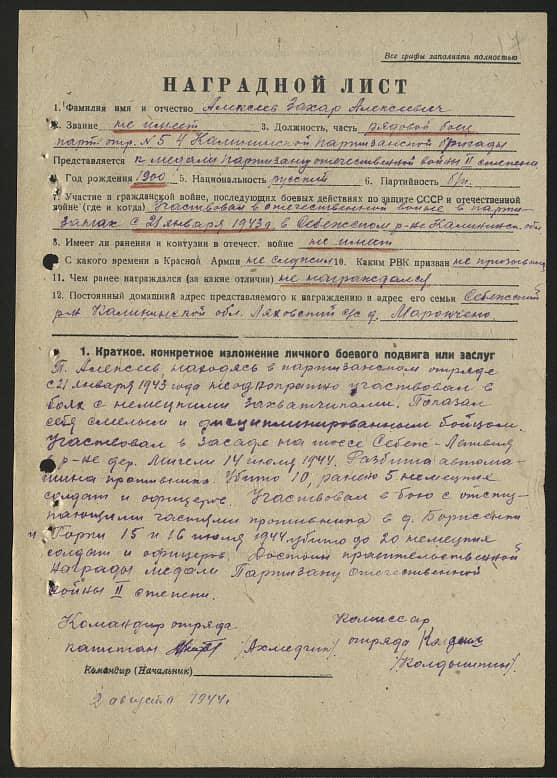 17
Все графы заполнять полностью
НАГРАДНОЙ ЛИСТ
1. Фамилия имя и отчество Алексеев Захар Алексеевич
2. Звание не имеет 3. Должность, часть рядовой боец
парт. отр. №5 4 Калининской партизанской бригады
Представляется к медали партизану отечественной войны II степени
4. Год рождения 1900 5. Национальность русский 6. Партийность б/п.
7. Участие в гражданской войне, последующих боевых действиях по защите СССР и отечественной
войне (где и когда) Участвовал в отечественной войне в парти-
занах с 21 января 1943г. в Себежском р-не Калининск. обл
8. Имеет ли ранения и контузии в отечест. войне не имеет
С какого времени в Красной Армии не служил 10. Каким РВК призван не призовался
11. Чем ранее награждался (за какие отличия) не награждался
12. Постоянный домашний адрес представляемого к награждению и адрес его семьи Себежский
р-н Калининской обл. Ляховский с/с д.
1. Краткое, конкретное изложение личного боевого подвига или заслуг
Т. Алексеев, находясь в партизанском отряде
с 21 января 1943 года неоднократно участвовал в
боях с немецкими захватчиками. Показал
себя смелым и дисциплинированным бойцом.
Участвовал в засаде на шоссе Себеж-Латвия
в р-не дер. Мигели 14 июля 1944. Разбита автома-
шина противника. Убито 10, ранено 5 немецких
солдат и офицеров. Участвовал в бою с отсту-
пающими частями противника в д. Борисенки
и Горки 15 и 16 июля 1944 убито до 20 немецких
солдат и офицеров. Достоин правительственной
награды медали Партизану Отечественной
войны II степени.
Командир отряда комиссар
капитан /Ахмедчин/ отряда
/Колдышкин/.
Командир (Начальник)
2 августа 1944г.